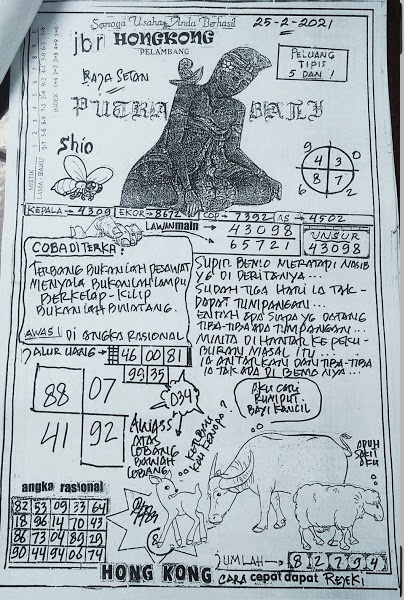 Semoga Usaha Anda Berhasil
25-2-2021
jbr HONGKONG
PELAMBANG
RAJA SETAN
PUTRA BALI
PELUANG
TIPIS
5 DAN 1
Shio
9 0
4 3
8 7
6 2
MISTIK
LAMA
BARU
INDEX
KEPALA → 4309 EKOR → 8672 COP → 7392 AS → 4502
LAWAN main → 43098
→ 65721
UNSUR
43098
COBA DI TERKA:
TERBANG BUKANLAH PESAWAT
MENYALA BUKANLAH LAMPU
BERKELAP-KILIP
BUKANLAH BINATANG.
AWAS! DI ANGKA RASIONAL
SUPIR BEMO MERATAPI NASIB
YG DI DERITANYA...
SUDAH TIGA HARI IA TAK-
DAPAT TUMPANGAN....
ENTAH ADA SIAPA YG DATANG
TIBA-TIBA ADA TUMPANGAN...
MINTA DI HANTAR KE PEKU-
BURAN MASAL ITU...
IA ANTARKAN DAN TIBA-TIBA
IA TAK ADA DI BEMO NYA...
JALUR UANG → 46 00 81
99 35
034
88 07
41 92
AWASS
ATAS
LOBANG
BAWAH
LOBANG
AKU CARI
RUMPUT
BAYI KANCIL
KAU KENAPA?
ADUH
SAKIT
AKU
angka rasional
82 53 09 33 64
18 96 14 70 43
86 73 04 89 29
90 44 94 06 74
8
JUMLAH → 8 2 7 9 4
HONG KONG CARA cepat dapat REJEKI